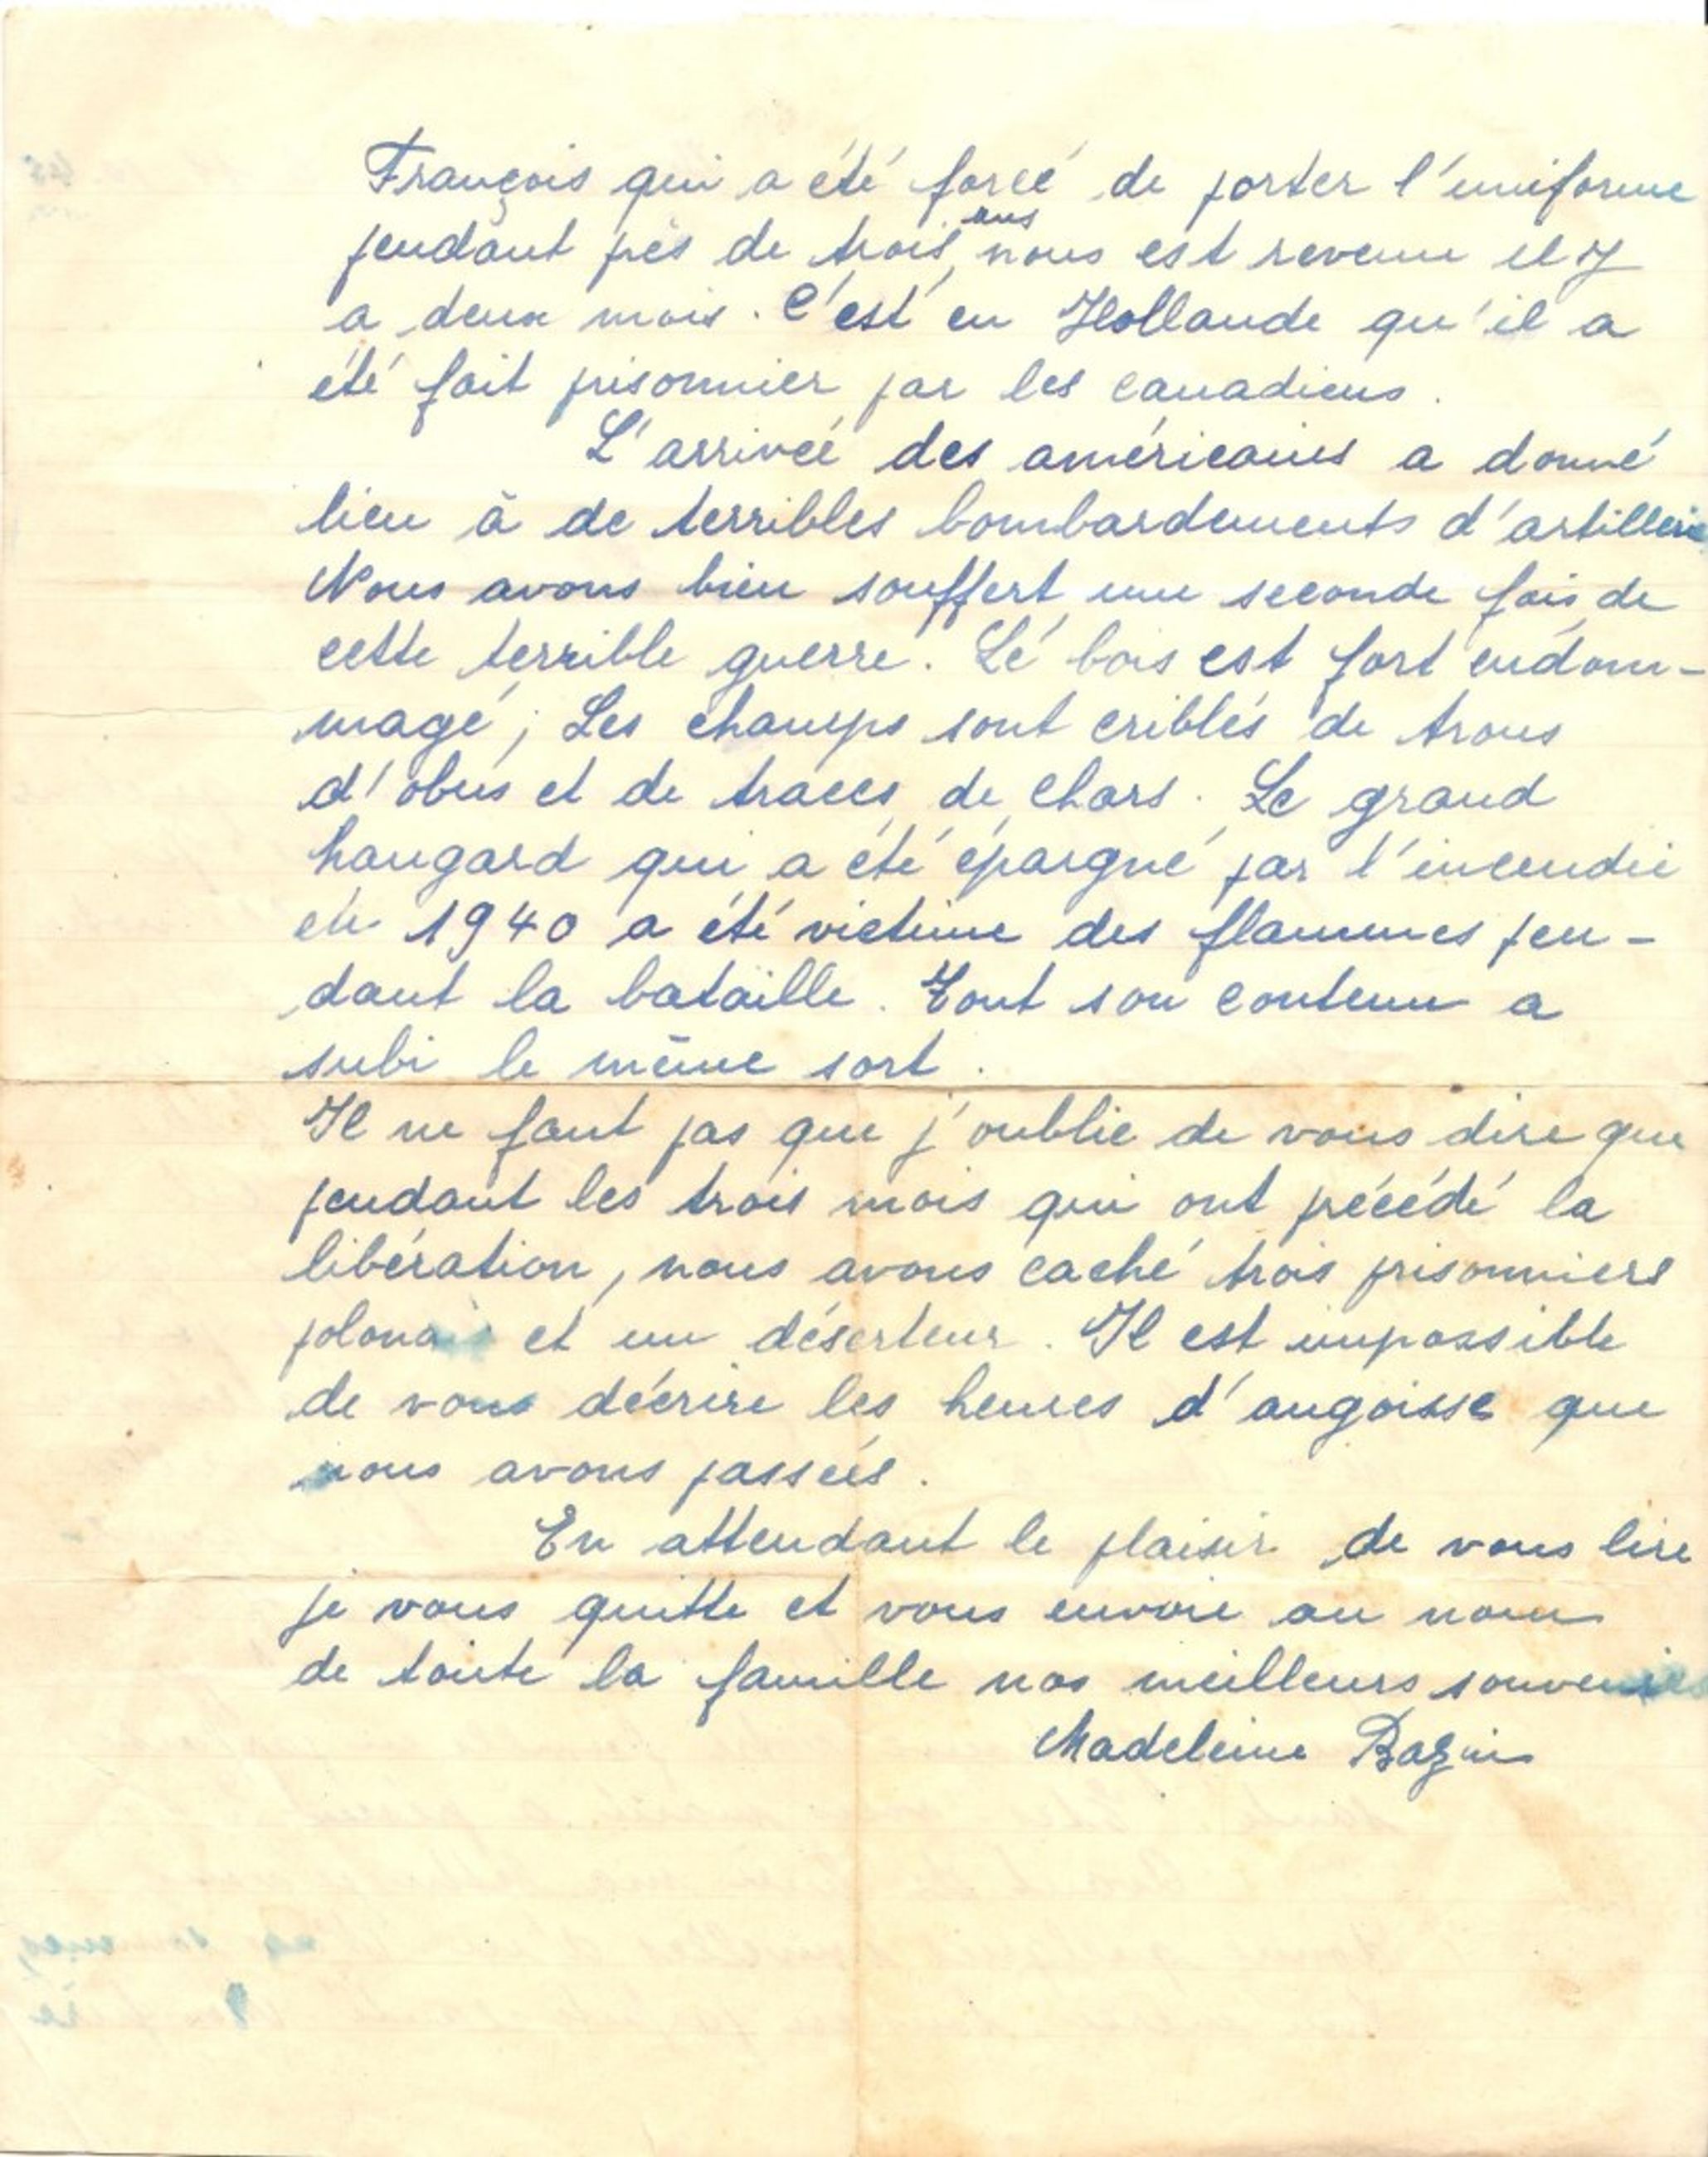 François qui a été forcé de porter l'uniforme
pendant près de trois ans, nous est revenu il y
a deux mois. C'est en Hollande qu'il a
été fait prisonnier par les canadiens.
L'arrivée des américains a donné
lieu à de terribles bombardements d'artillerie
Nous avons bien souffert une seconde fois de
cette terrible guerre. Le bois est fort endom-
magé ; Les champs sont criblés de trous
d'obus et de traces de chars. Le grand
hangard qui a été épargné par l'incendie
en 1940 a été victime des flammes pen-
dant la bataille. Tout son contenu a
subi le même sort.
Il ne faut pas que j'oublie de vous dire que
pendant les trois mois qui ont précédé la
libération, nous avons caché trois prisonniers
polonais et un déserteur. Il est impossible
de vous décrire les heures d'angoisse que
nous avons passées.
En attendant le plaisir de vous lire
je vous quitte et vous envoie au nom
de toute la famille nos meilleurs souvenirs
Madeleine Bazin